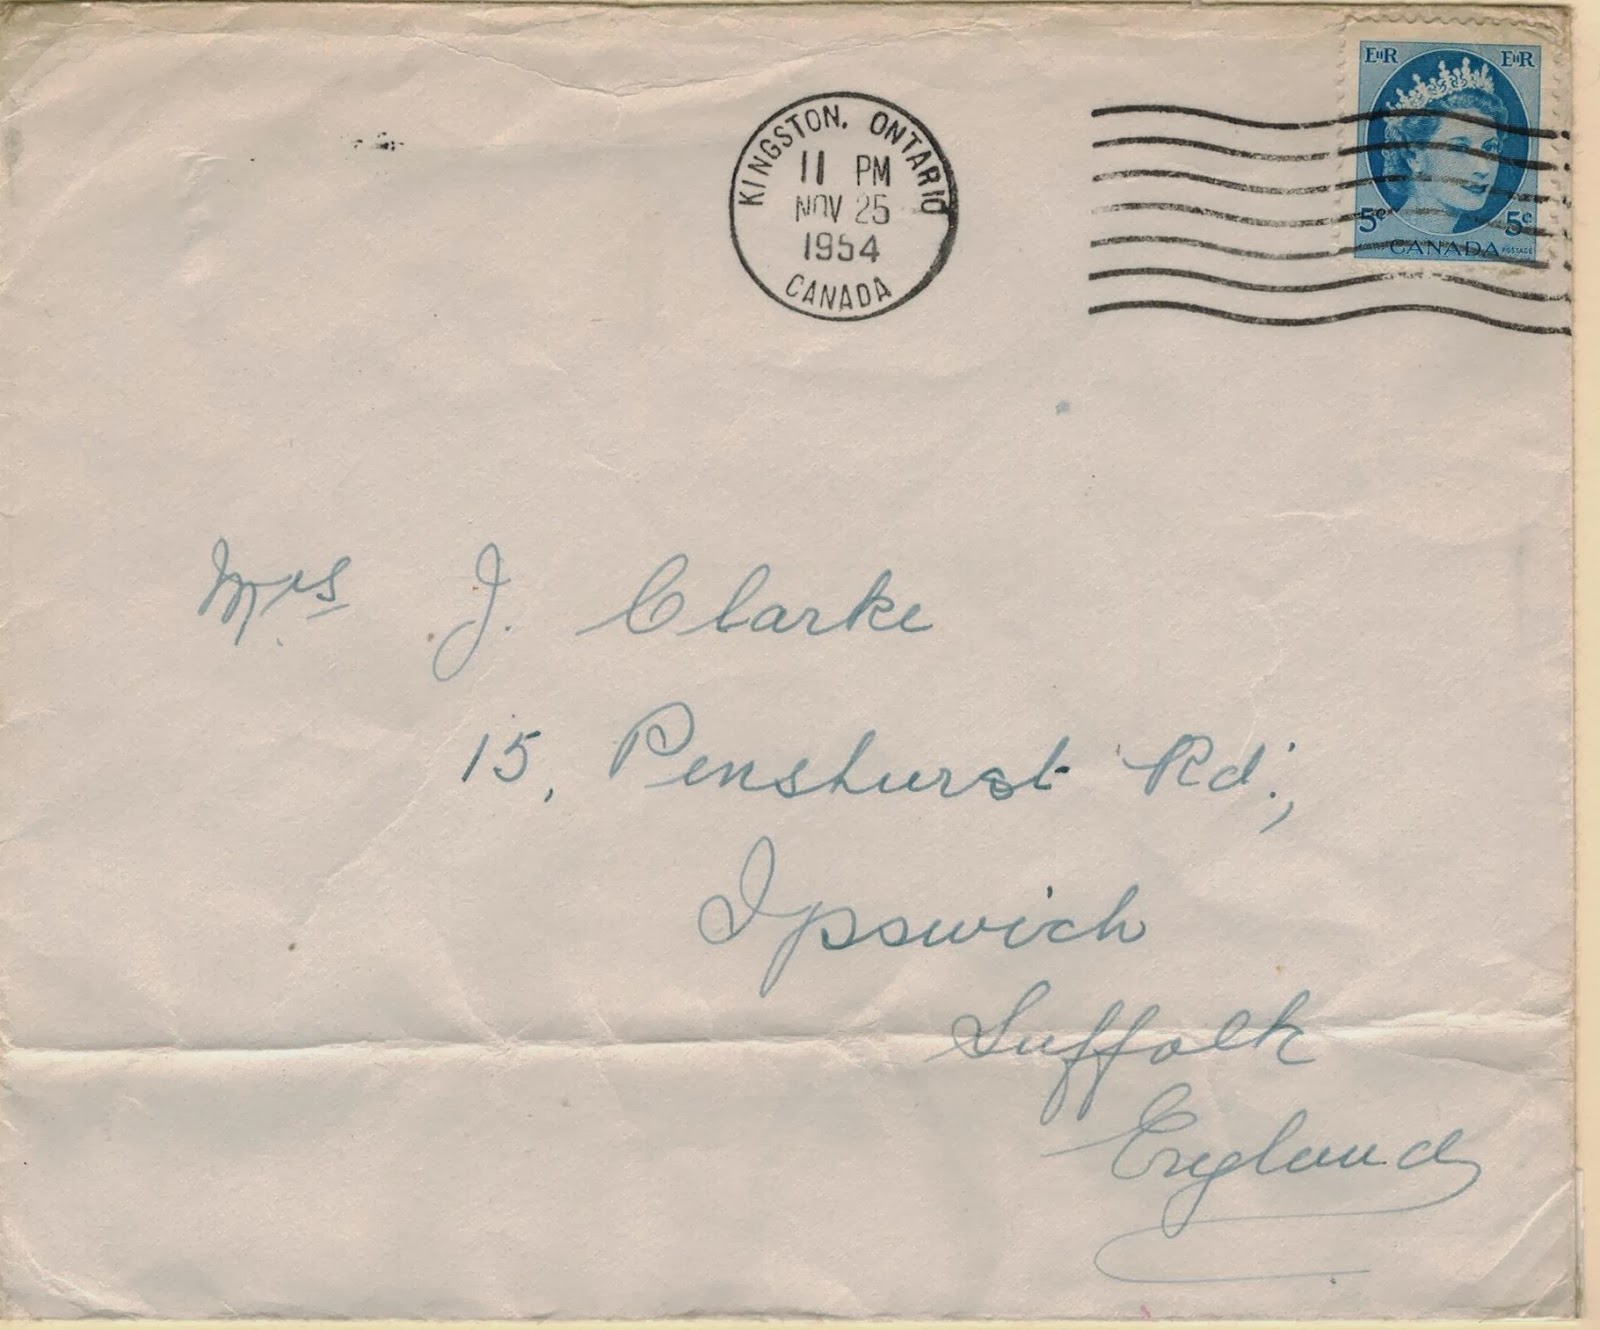 KINGSTON, ONTARIO
11 PM
NOV 25
1954
CANADA
EIIR EIIR
5c 5c
CANADA POSTAGE
Mrs J. Clarke
15, Penshurst Rd.,
Ipswich
Suffolk
England